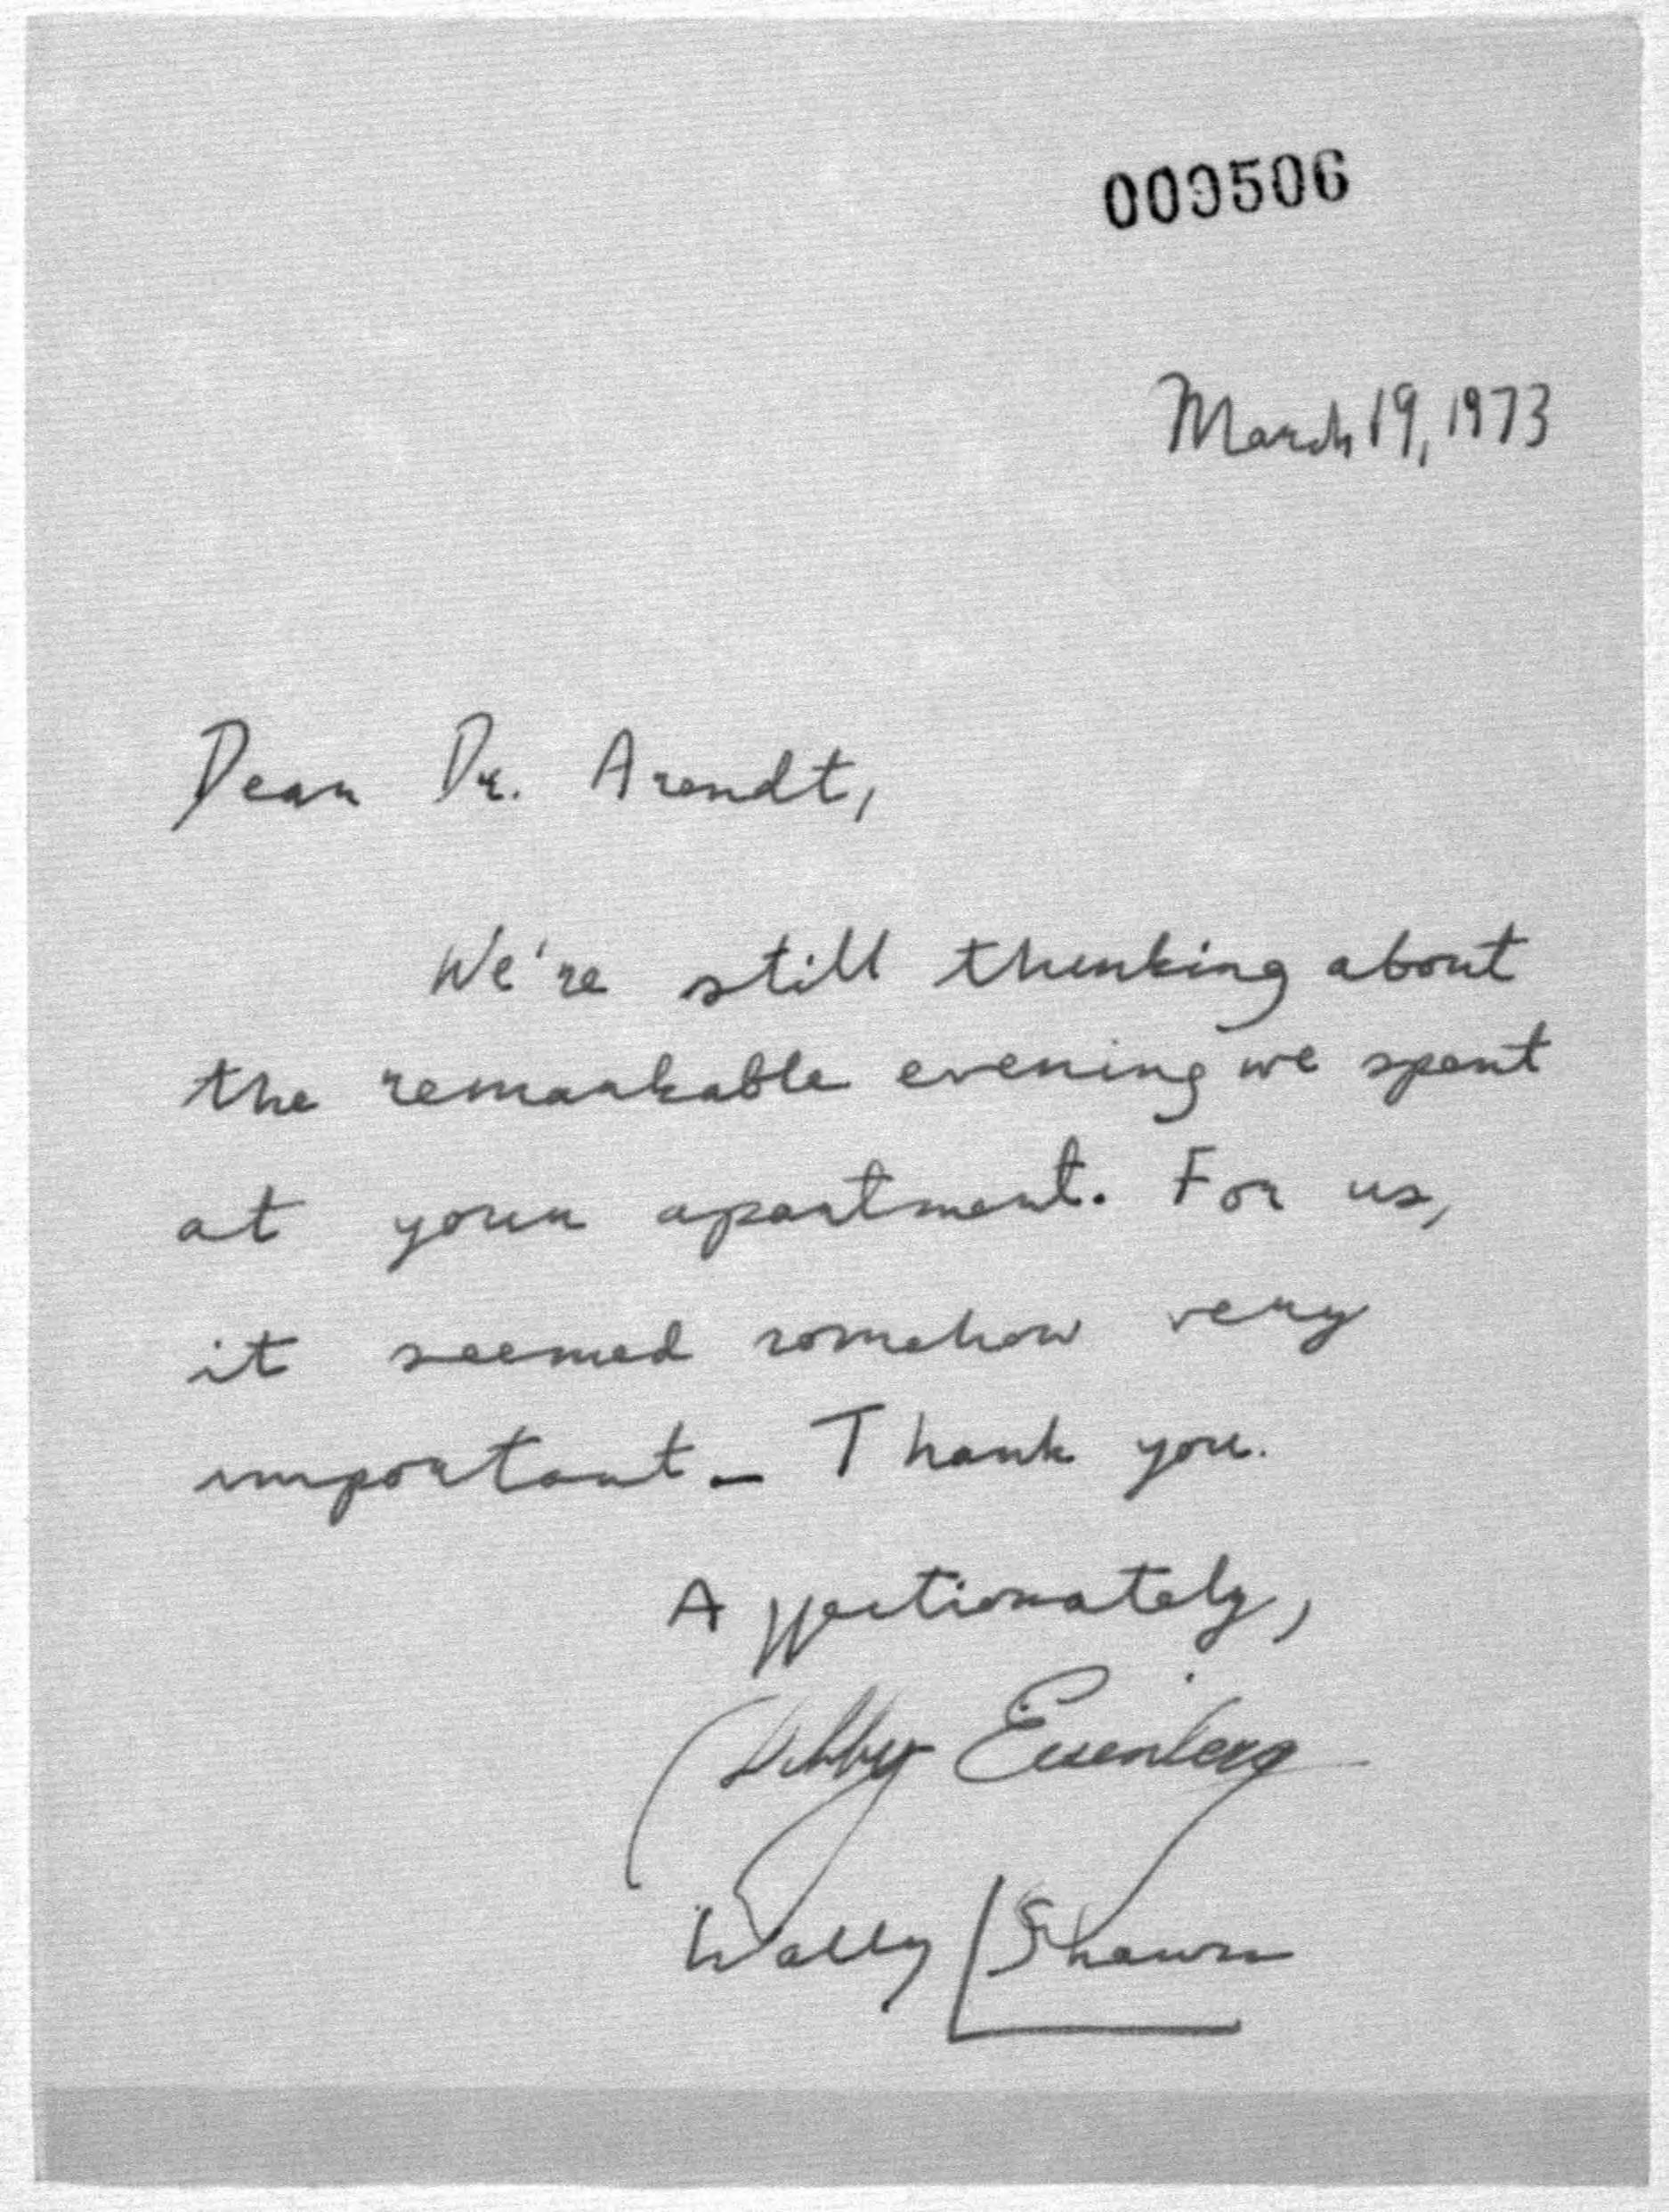 009506
March 19, 1973
Dear Dr. Arendt,
We're still thinking about
the remarkable evening we spent
at your apartment. For us,
it seemed somehow very
important – Thank you.
Affectionately,
Debby Eisenberg
Wally Shawn